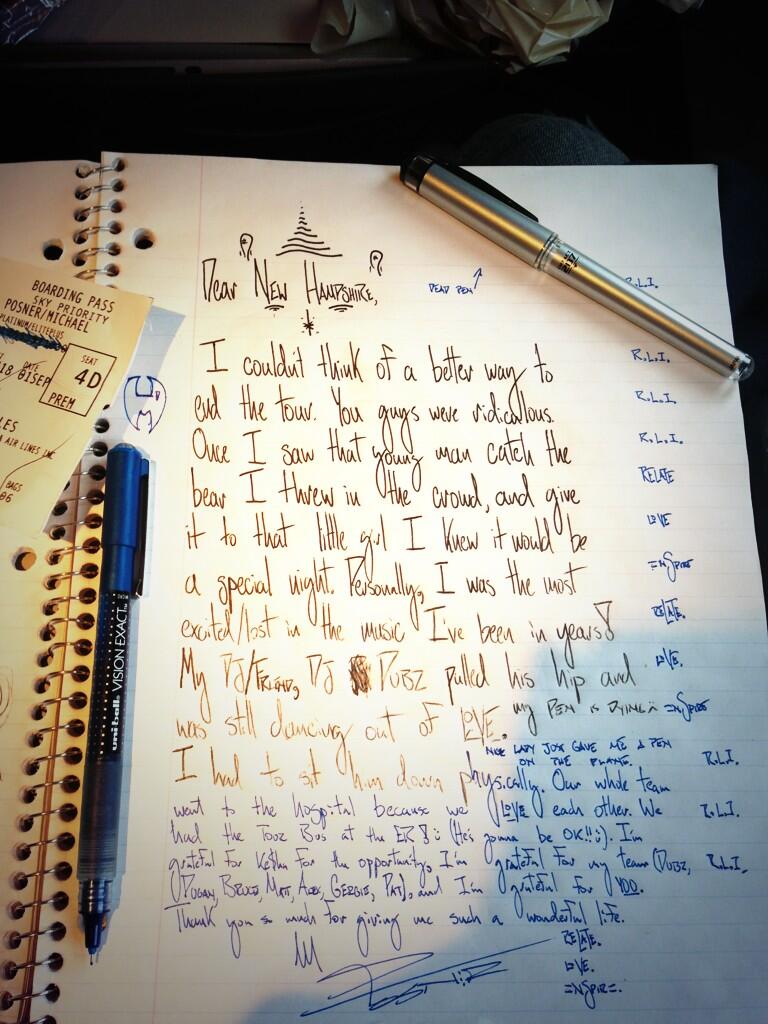 BOARDING PASS
SKY PRIORITY
POSNER/MICHAEL
PLATINUM/ELITEPLUS
DATE
SEAT
18 01SEP
4D
PREM
LES
AIR LINES INC
BAGS
06
uni-ball VISION EXACT
MICRO
Dear New Hampshire,
DEAD PEN
R.L.I.
I couldn't think of a better way to
R.L.I.
end the tour. You guys were ridiculous.
R.L.I.
Once I saw that young man catch the
R.L.I.
bear I threw in the crowd, and give
RELATE
it to that little girl I knew it would be
LOVE
a special night. Personally, I was the most
INSPIRE
excited/lost in the music I've been in years!
RELATE.
My DJ/FRIEND, DJ DUBZ pulled his hip and
LOVE.
was still dancing out of LOVE.
MY PEN IS DYING
INSPIRE
NICE LADY JOY GAVE ME A PEN
ON THE PLANE.
I had to sit him down physically. Our whole team
R.L.I.
went to the hospital because we LOVE each other. We
R.L.I.
had the Tour Bus at the ER! :) (He's gonna be OK!! :)). I'm
grateful for Ke$ha for the opportunity, I'm grateful for my team (DUBZ,
R.L.I.
DUGAN, BRUCE, MAT, ALEX, GERBIE, PAT), and I'm grateful for YOU.
Thank you so much for giving me such a wonderful life.
RELATE.
LOVE.
INSPIRE.